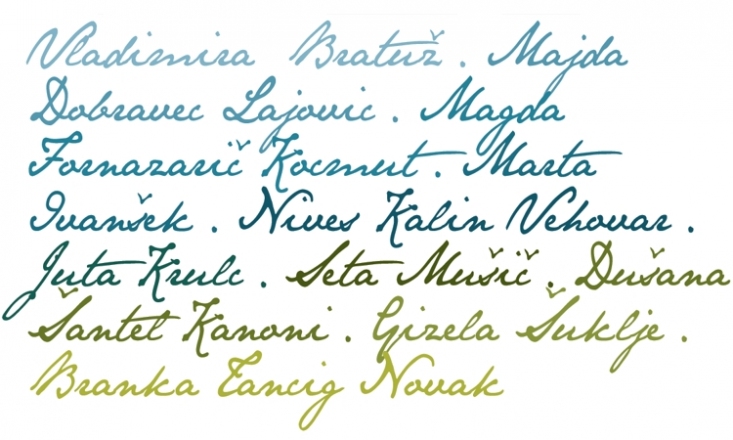 Vladimira Bratuž . Majda
Dobravec Lajovic . Magda
Fornazarič Kocmut . Marta
Ivanšek . Nives Kalin Vehovar .
Juta Krulc . Seta Mušič . Dušana
Šantel Kanoni . Gizela Šuklje .
Branka Tancig Novak